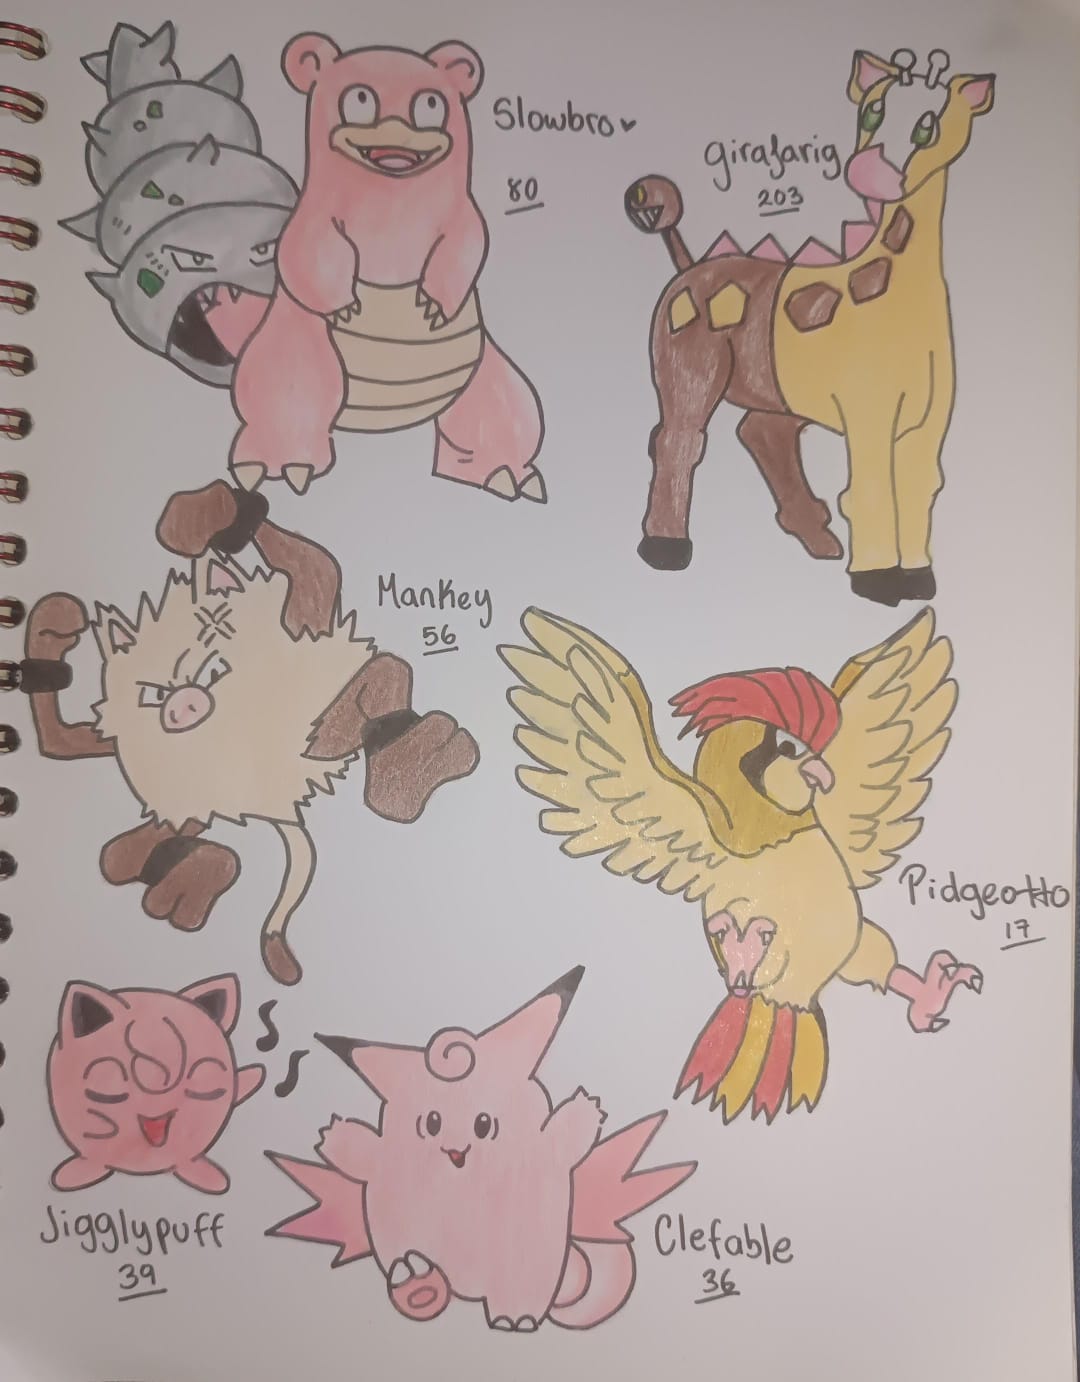 Slowbro
80
girafarig
203
Mankey
56
Pidgeotto
17
Jigglypuff
39
Clefable
36